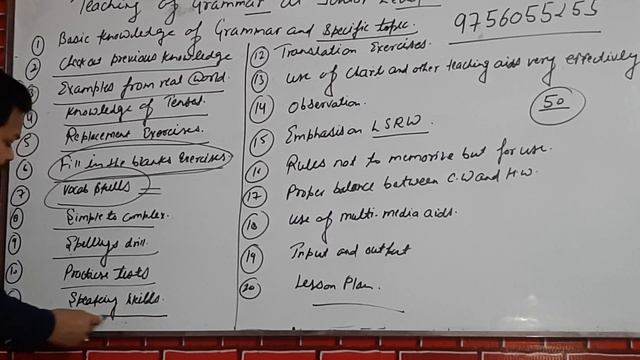 Teaching of Grammar at Junior Level
① Basic knowledge of Grammar and Specific topic.
② Check out previous knowledge
③ Examples from real world.
④ Knowledge of Tenses.
⑤ Replacement Exercises.
⑥ Fill in the blanks Exercises.
⑦ Vocab Skills
⑧ Simple to complex.
⑨ Spellings drill.
⑩ Practise tests
Speaking Skills.
9756055255
⑫ Translation Exercises.
⑬ Use of Chart and other teaching aids very effectively
⑭ Observation.
50
⑮ Emphasis on LSRW.
⑯ Rules not to memorise but for use.
⑰ Proper balance between C.W and H.W.
⑱ Use of multi-media aids.
⑲ Input and output
⑳ Lesson Plan.